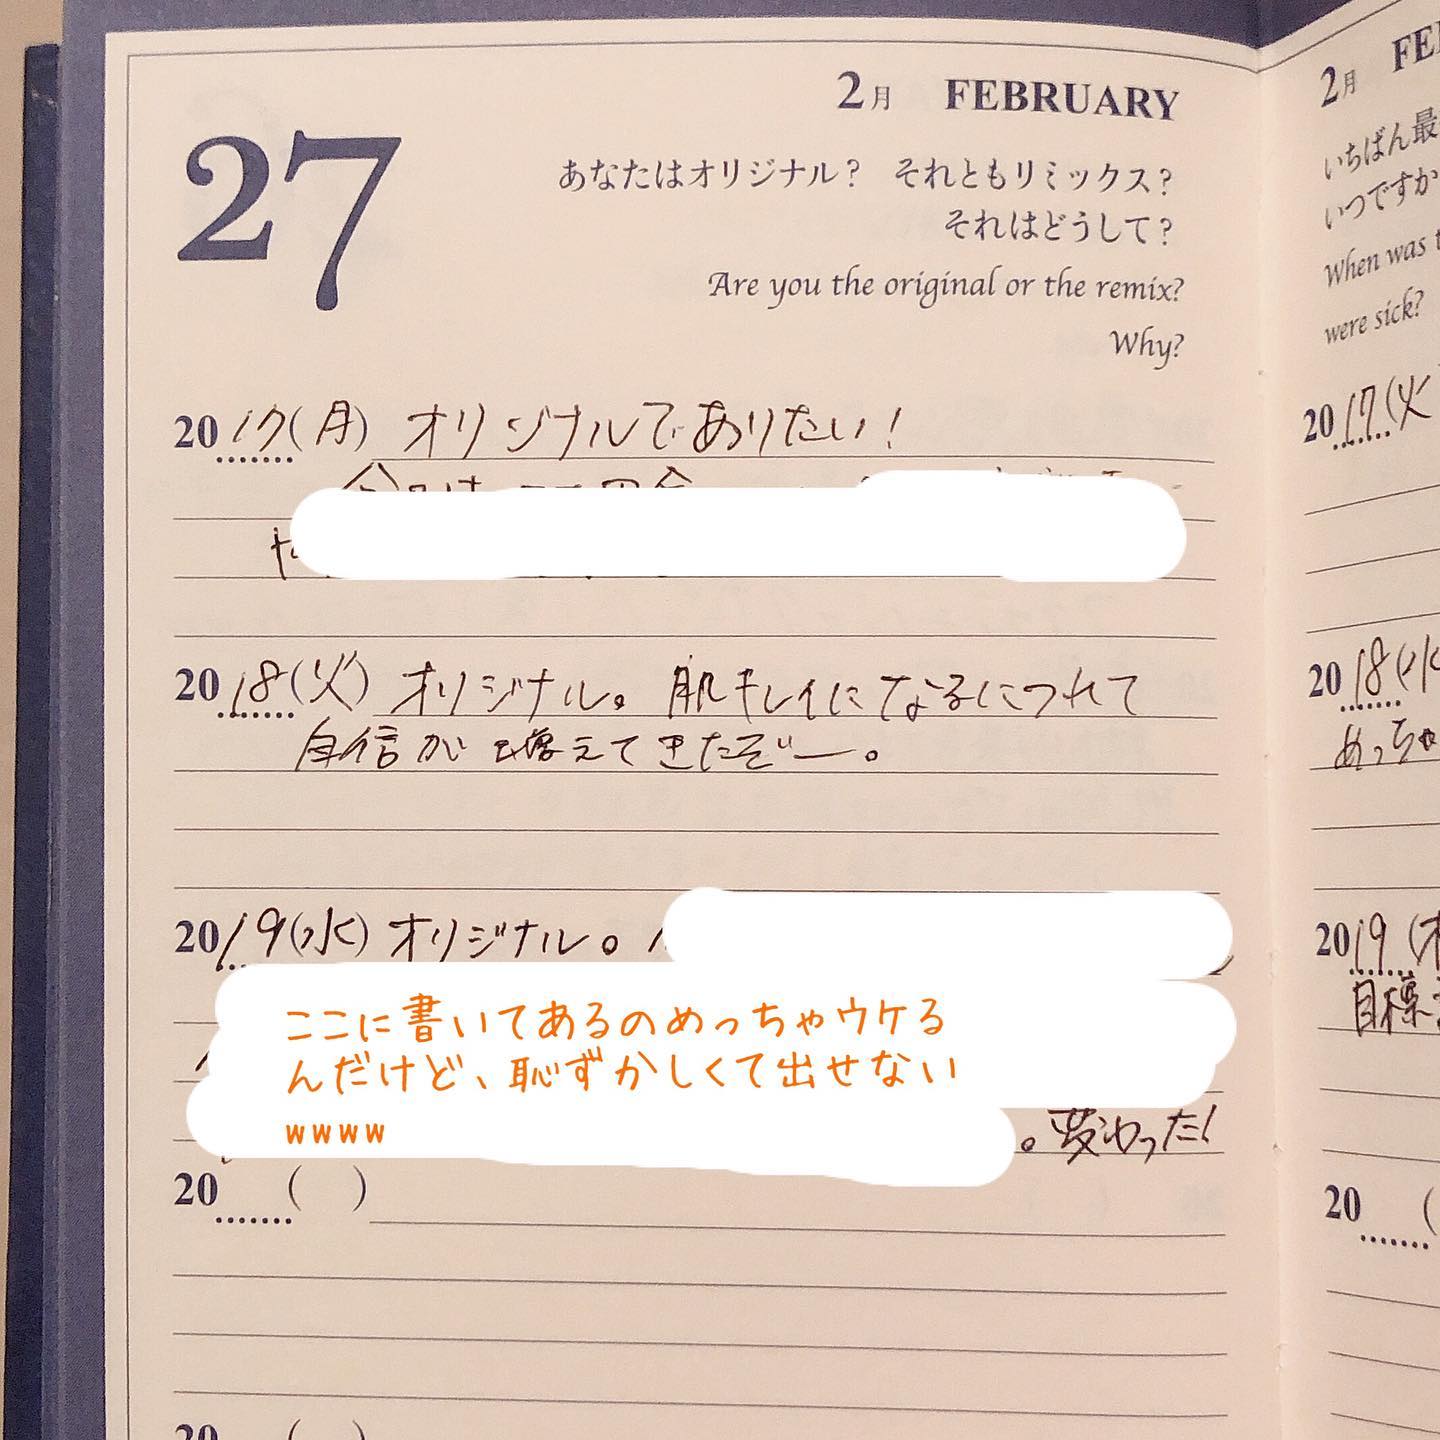 2月 FEBRUARY
27
あなたはオリジナル？ それともリミックス？
それはどうして？
Are you the original or the remix?
Why?
2017(月) オリジナルでありたい！
2018(火) オリジナル。肌キレイになるにつれて
自信が増えてきたぞー。
2019(水) オリジナル。
ここに書いてあるのめっちゃウケる
んだけど、恥ずかしくて出せない
wwww
。変わった！
20 ( )
20 ( )
2月 FE
いちばん最
いつですか
When was t
were sick?
2017(火
2018(水
めっちゃ
2019(木
目標
20 (